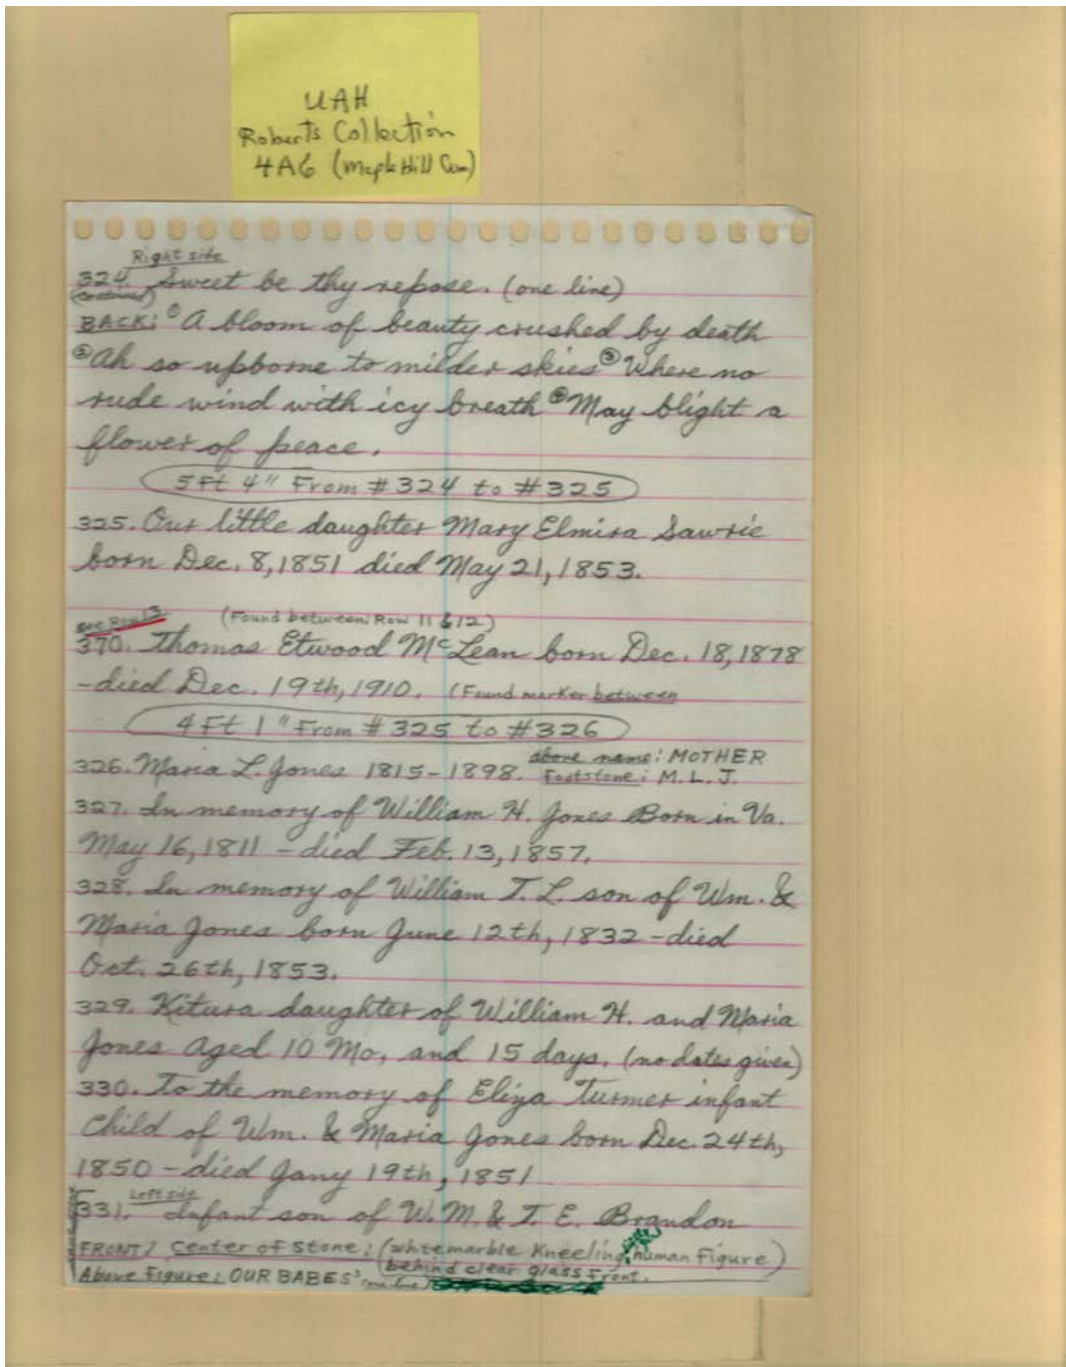 UAH
Roberts Collection
4A6 (Maple Hill Cem)
Right side
324. Sweet be thy repose. (one line)
(continued)
BACK: ① A bloom of beauty crushed by death
② Ah so upborne to milder skies ③ Where no
rude wind with icy breath ④ May blight a
flower of peace.
5Ft 4" From #324 to #325
325. Our little daughter Mary Elmira Sawrie
born Dec. 8, 1851 died May 21, 1853.
see Row 13 (Found between Row 11 & 12)
370. Thomas Etwood McLean born Dec. 18, 1878
-died Dec. 19th, 1910. (Found marker between
4Ft 1" From #325 to #326
above name: MOTHER
326. Maria L. Jones 1815-1898. Footstone: M. L. J.
327. In memory of William H. Jones Born in Va.
May 16, 1811 - died Feb. 13, 1857.
328. In memory of William T. L. son of Wm. &
Maria Jones born June 12th, 1832 - died
Oct. 26th, 1853.
329. Kitura daughter of William H. and Maria
Jones Aged 10 Mo. and 15 days. (no dates given)
330. To the memory of Eliza Turner infant
Child of Wm. & Maria Jones born Dec. 24th,
1850 - died Jany 19th, 1851
Left side
331. Infant son of W. M. & T. E. Brandon
FRONT: Center of Stone: (white marble Kneeling human Figure)
behind clear glass front.
Above Figure: OUR BABES' (one line)